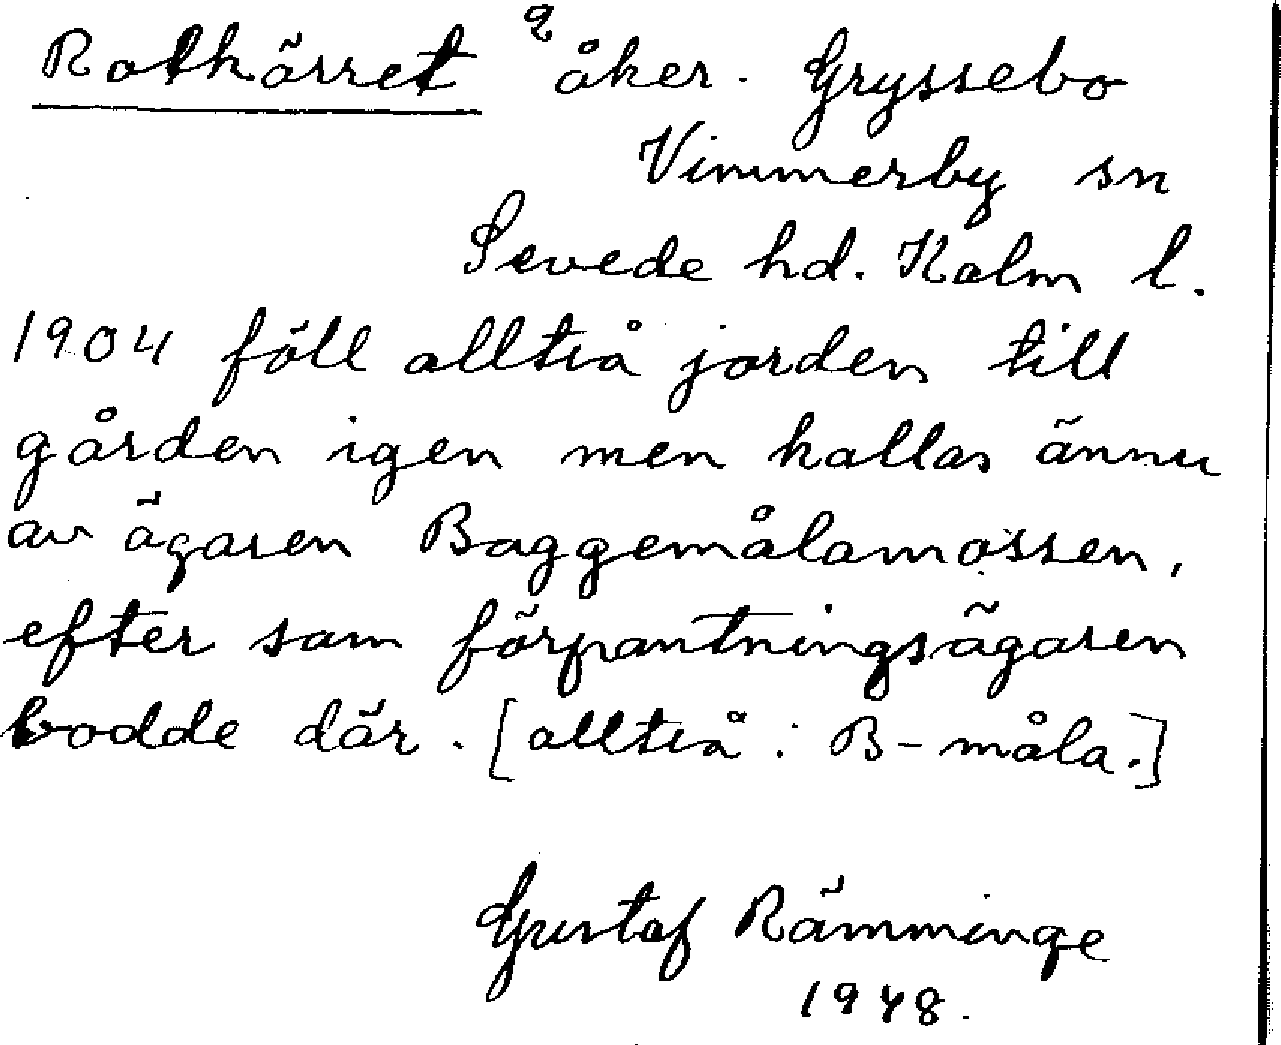 Rotkärret 2 åker. Gryssebo
Vimmerby sn
Sevede hd. Kalm l.
1904 föll alltså jorden till
gården igen men kallas ännu
av ägaren Baggemålamossen,
efter som förpantningsägaren
bodde där. [alltså: B-måla.]
Gustaf Rämminge
1948.